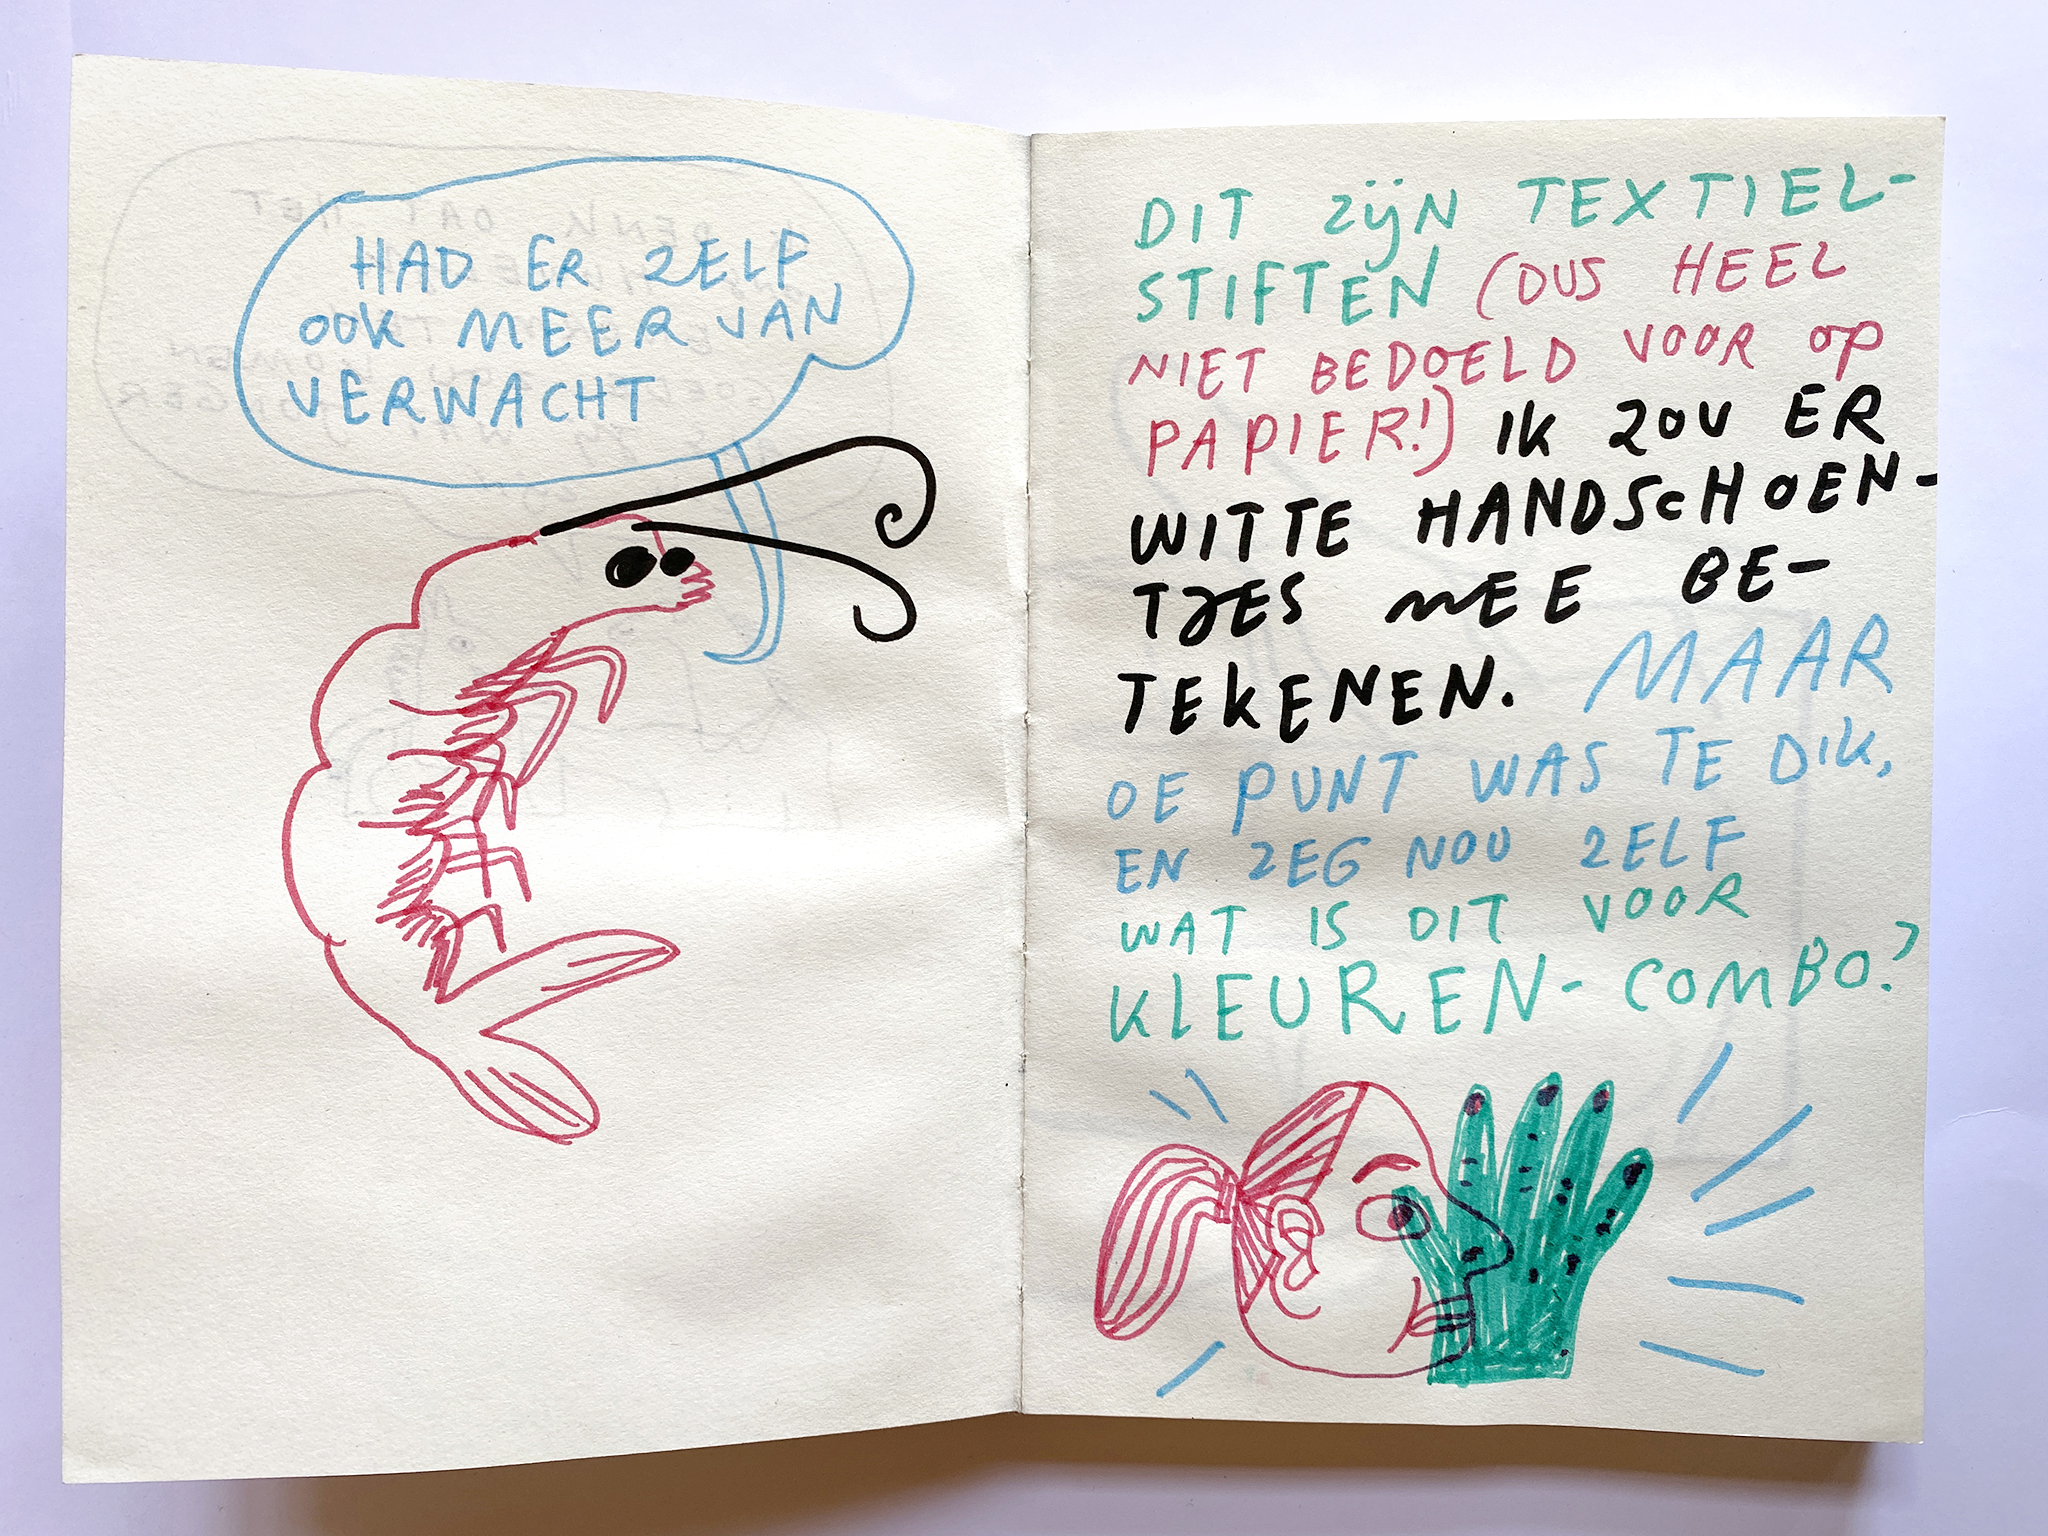 HAD ER ZELF
OOK MEER VAN
VERWACHT
DIT ZIJN TEXTIEL-
STIFTEN (DUS HEEL
NIET BEDOELD VOOR OP
PAPIER!) IK ZOU ER
WITTE HANDSCHOEN-
TJES MEE BE-
TEKENEN. MAAR
DE PUNT WAS TE DIK,
EN ZEG NOU ZELF
WAT IS DIT VOOR
KLEUREN-COMBO?